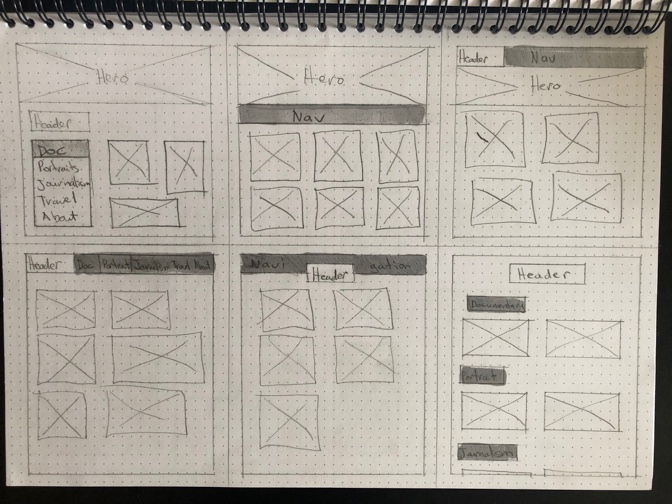 Hero
Header
Doc
Portraits
Journalism
Travel
About
Hero
Nav
Header Nav
Hero
Header Doc Portrait Journalism Travel About
Navi Header gation
Header
Documentary
Portrait
Journalism